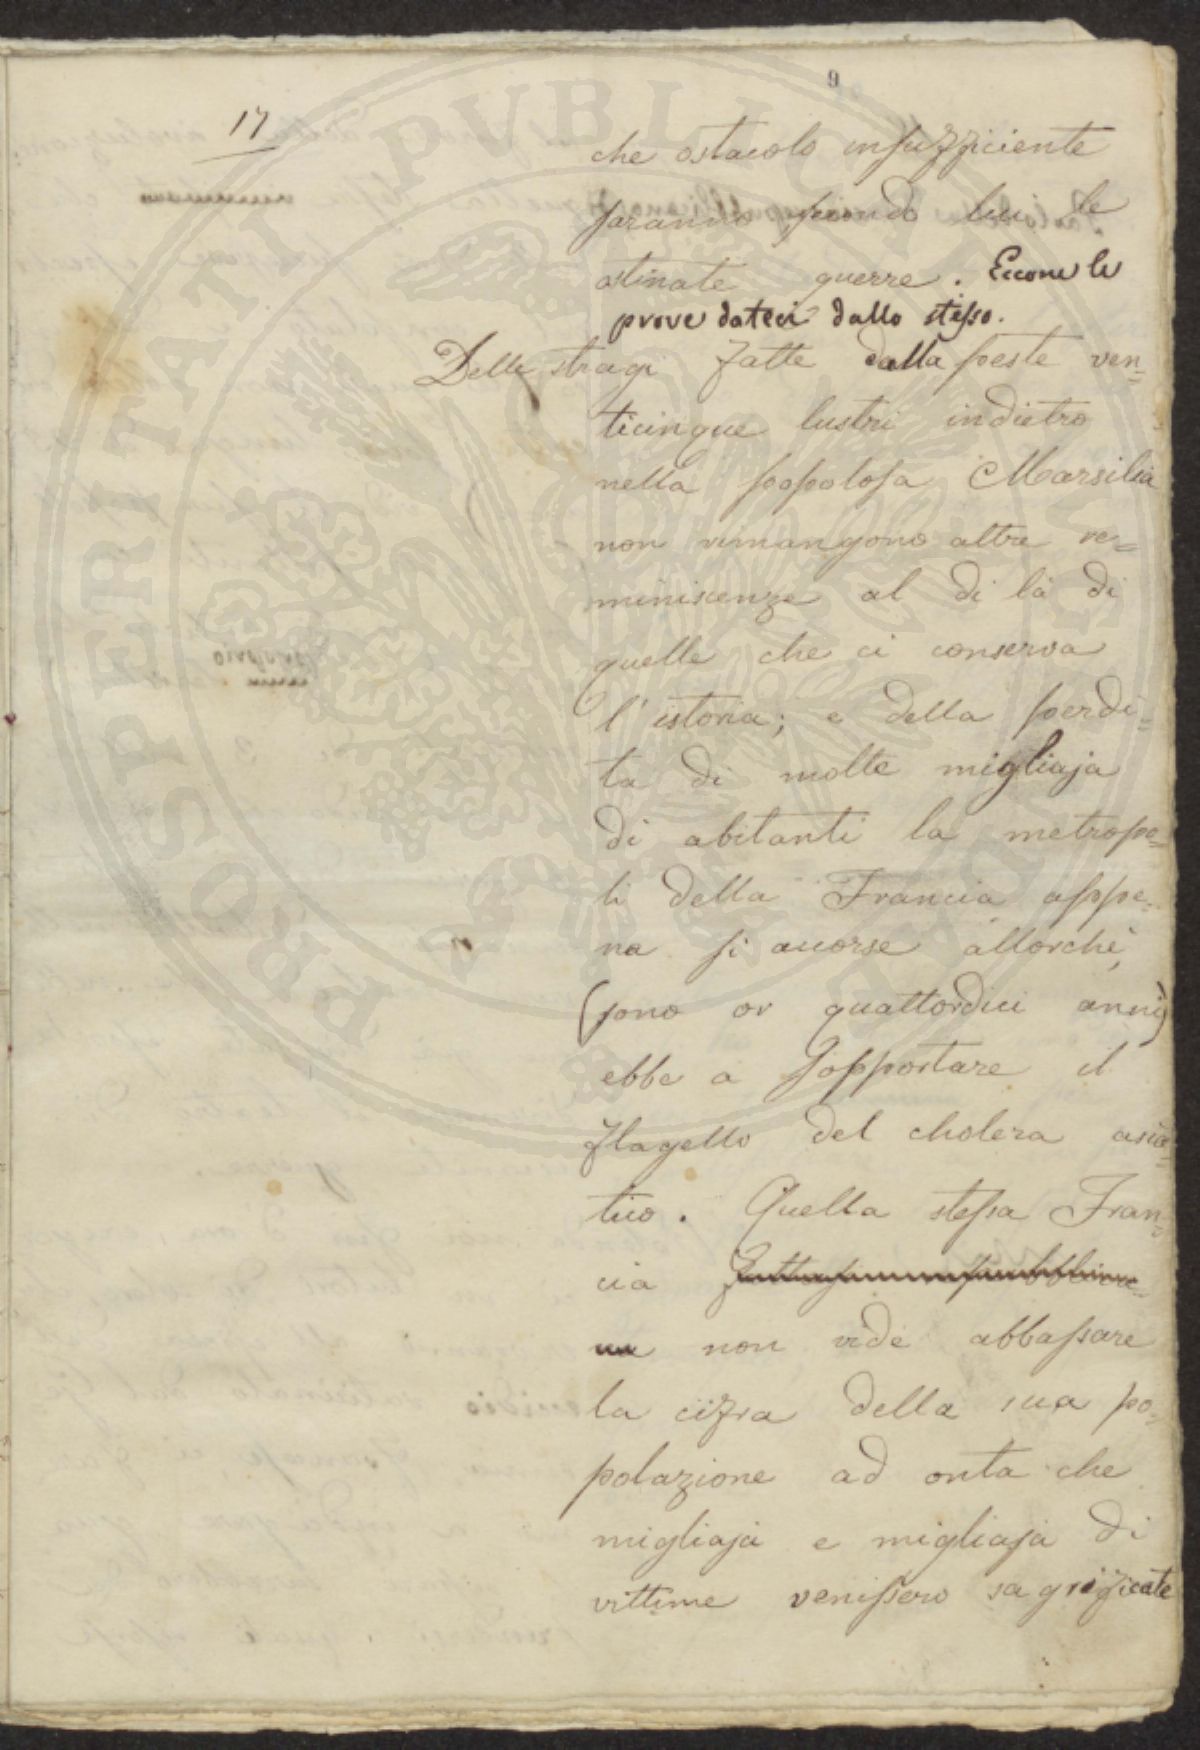 9
17
che ostacolo insufficiente
saranno secondo lui le
ostinate guerre. Eccone le
prove dateci dallo stesso.
Delle stragi fatte dalla peste ven=
ticinque lustri indietro
nella popolosa Marsilia
non rimangono altre re=
miniscenze al di là di
quelle che ci conserva
l'istoria; e della perdi=
ta di molte migliaja
di abitanti la metropo=
li della Francia appe=
na si accorse allorchè,
(sono or quattordici anni)
ebbe a sopportare il
flagello del cholera asia=
tico. Quella stessa Fran=
cia
non vide abbassare
la cifra della sua po=
polazione ad onta che
migliaja e migliaja di
vittime venissero sagrificate
PROSPERITATI PUBLICAE